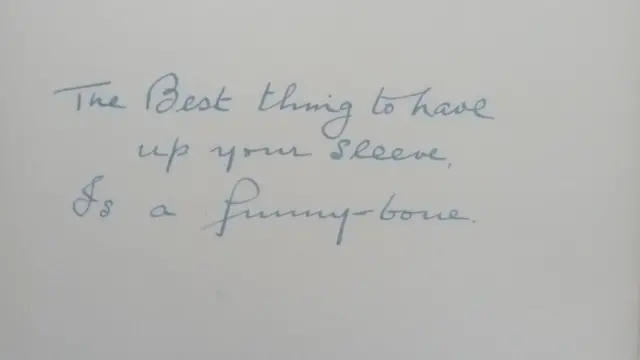 The Best thing to have
up your sleeve,
Is a funny-bone.